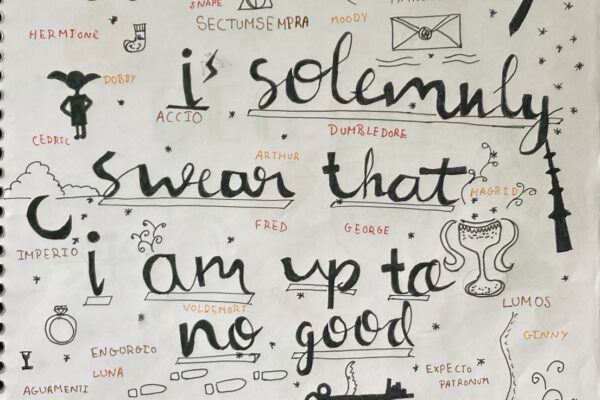 SNAPE
SECTUMSEMPRA
MOODY
HERMIONE
is solemnly
DOBBY
ACCIO
DUMBLEDORE
CEDRIC
ARTHUR
swear that
HAGRID
FRED
GEORGE
IMPERIO
i am up to
VOLDEMORT
LUMOS
no good
GINNY
ENGORGIO
LUNA
EXPECTO
PATRONUM
AGUAMENTI